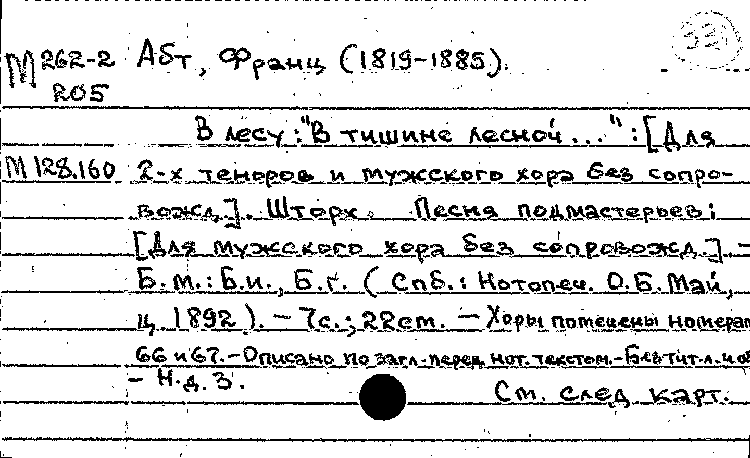 331
М 262-2 Абт, Франц (1819-1885).
205
В лесу: "В тишине лесной..." : [Для
М 128.160 2-х теноров и мужского хора без сопро-
вожд.]. Шторх. Песня подмастерьев:
[Для мужского хора без сопровожд.]. –
Б.м.: Б.и., Б.г. (Спб.: Нотопеч. О.Б. Май,
ц. 1892). – 7с.; 22cm. – Хоры помечены номерам
66 и 67. – Описано по загл. перед нот. текстом. – Без тит. л. и об
– Н.д. 3.
См. след. карт.